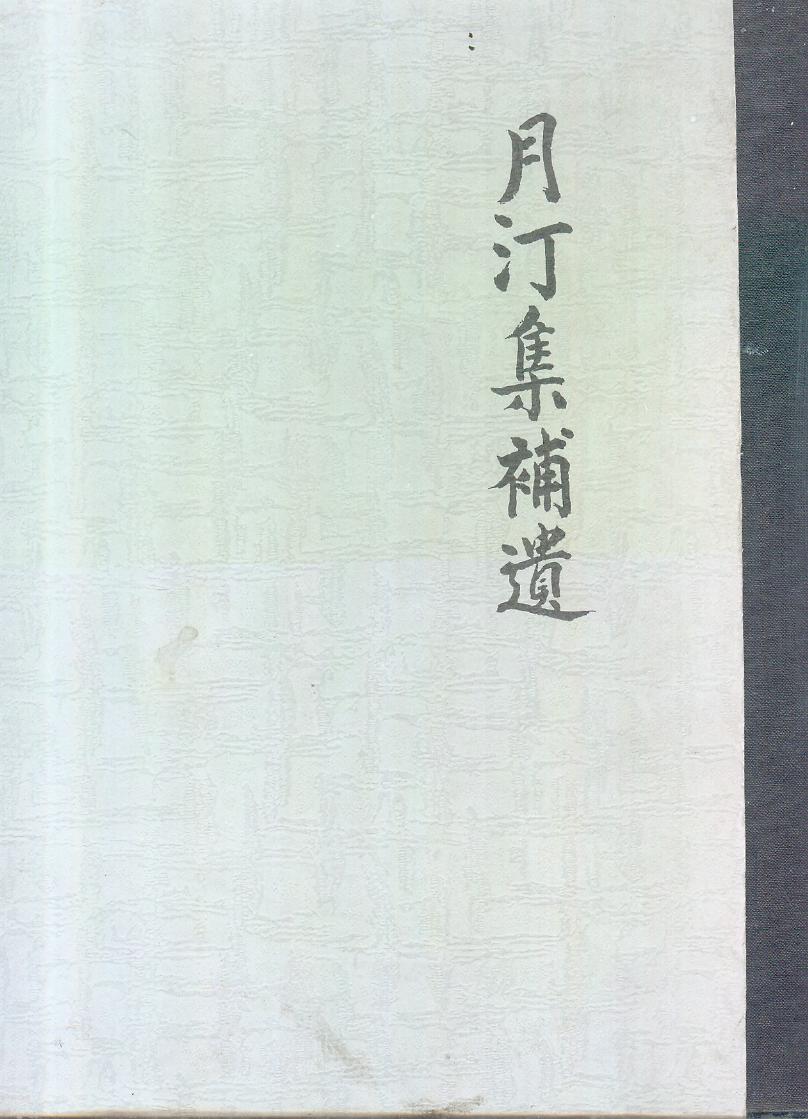 月汀集補遺